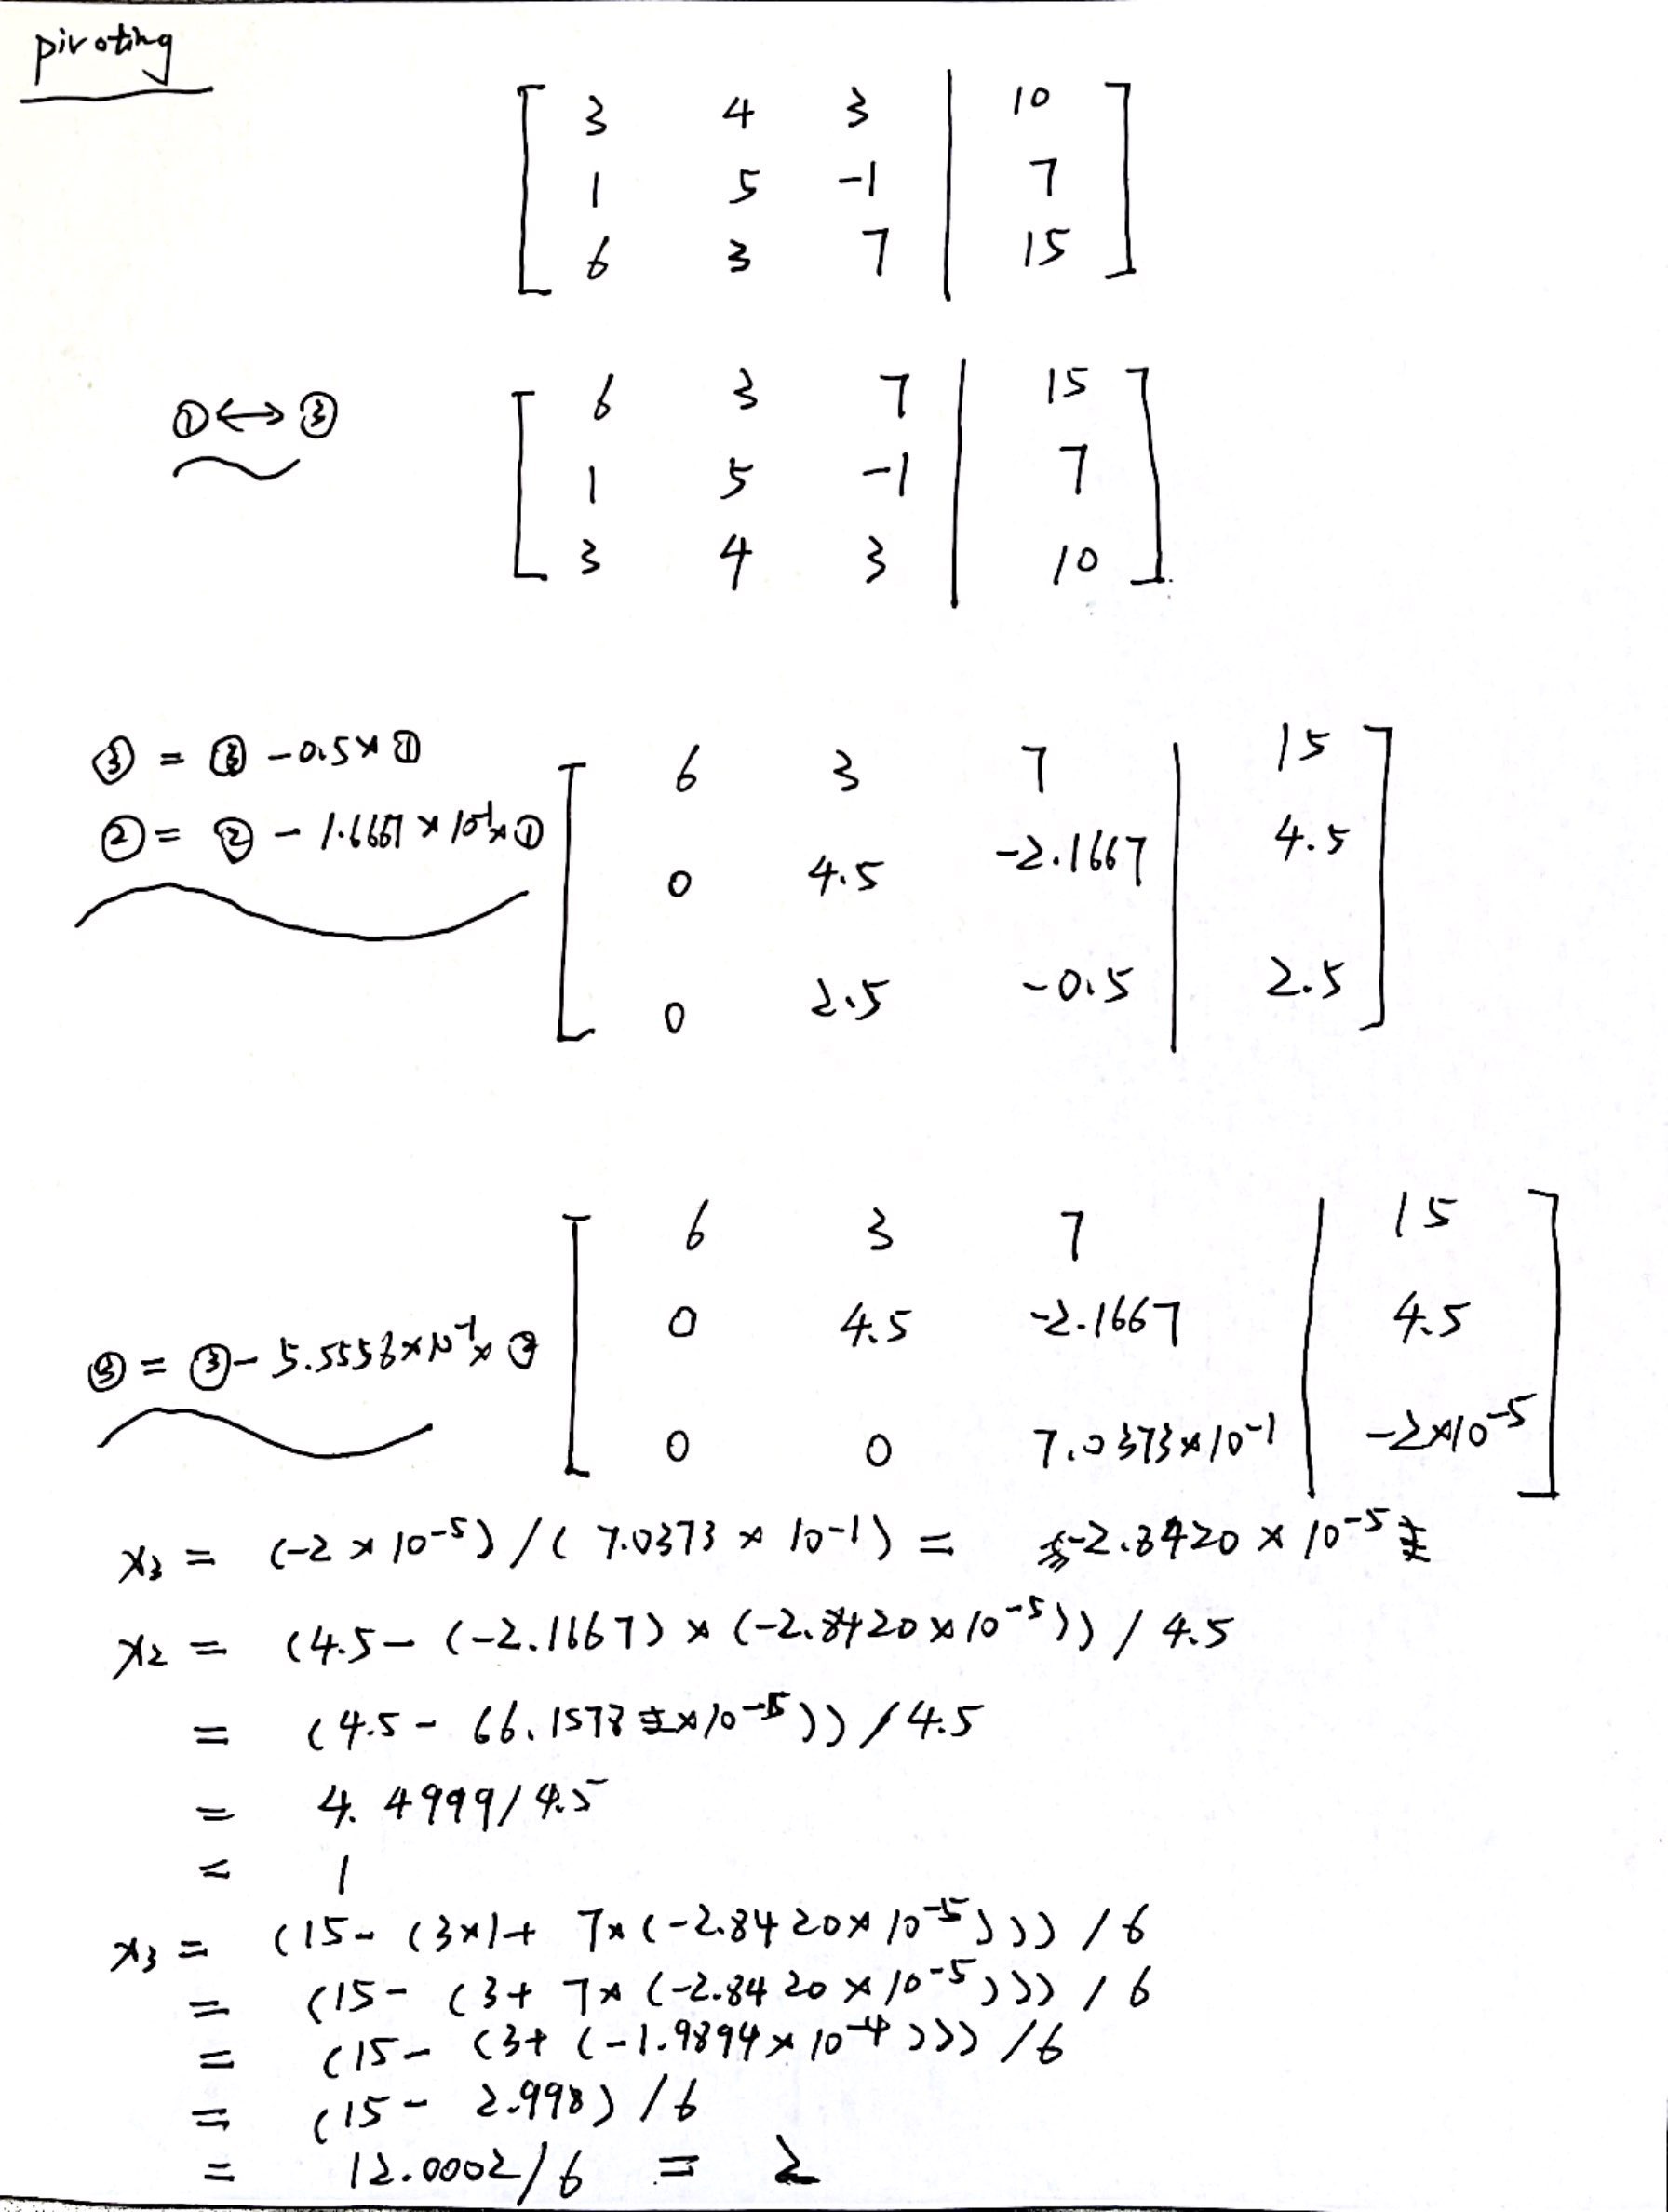 pivoting
[ 3 4 3 | 10 ]
[ 1 5 -1 | 7 ]
[ 6 3 7 | 15 ]
①↔③
[ 6 3 7 | 15 ]
[ 1 5 -1 | 7 ]
[ 3 4 3 | 10 ]
③ = ③ -0.5×①
② = ② - 1.6667×10⁻¹×①
[ 6 3 7 | 15 ]
[ 0 4.5 -2.1667 | 4.5 ]
[ 0 2.5 -0.5 | 2.5 ]
③ = ③ - 5.5556×10⁻¹×②
[ 6 3 7 | 15 ]
[ 0 4.5 -2.1667 | 4.5 ]
[ 0 0 7.0373×10⁻¹ | -2×10⁻⁵ ]
x₃ = (-2×10⁻⁵)/(7.0373×10⁻¹) = -2.8420×10⁻⁵
x₂ = (4.5-(-2.1667)×(-2.8420×10⁻⁵))/4.5
= (4.5- (6.1578×10⁻⁵))/4.5
= 4.4999/4.5
= 1
x₃ = (15-(3×1+7×(-2.8420×10⁻⁵)))/6
= (15-(3+7×(-2.8420×10⁻⁵)))/6
= (15-(3+(-1.9894×10⁻⁴)))/6
= (15-2.998)/6
= 12.0002/6 = 2